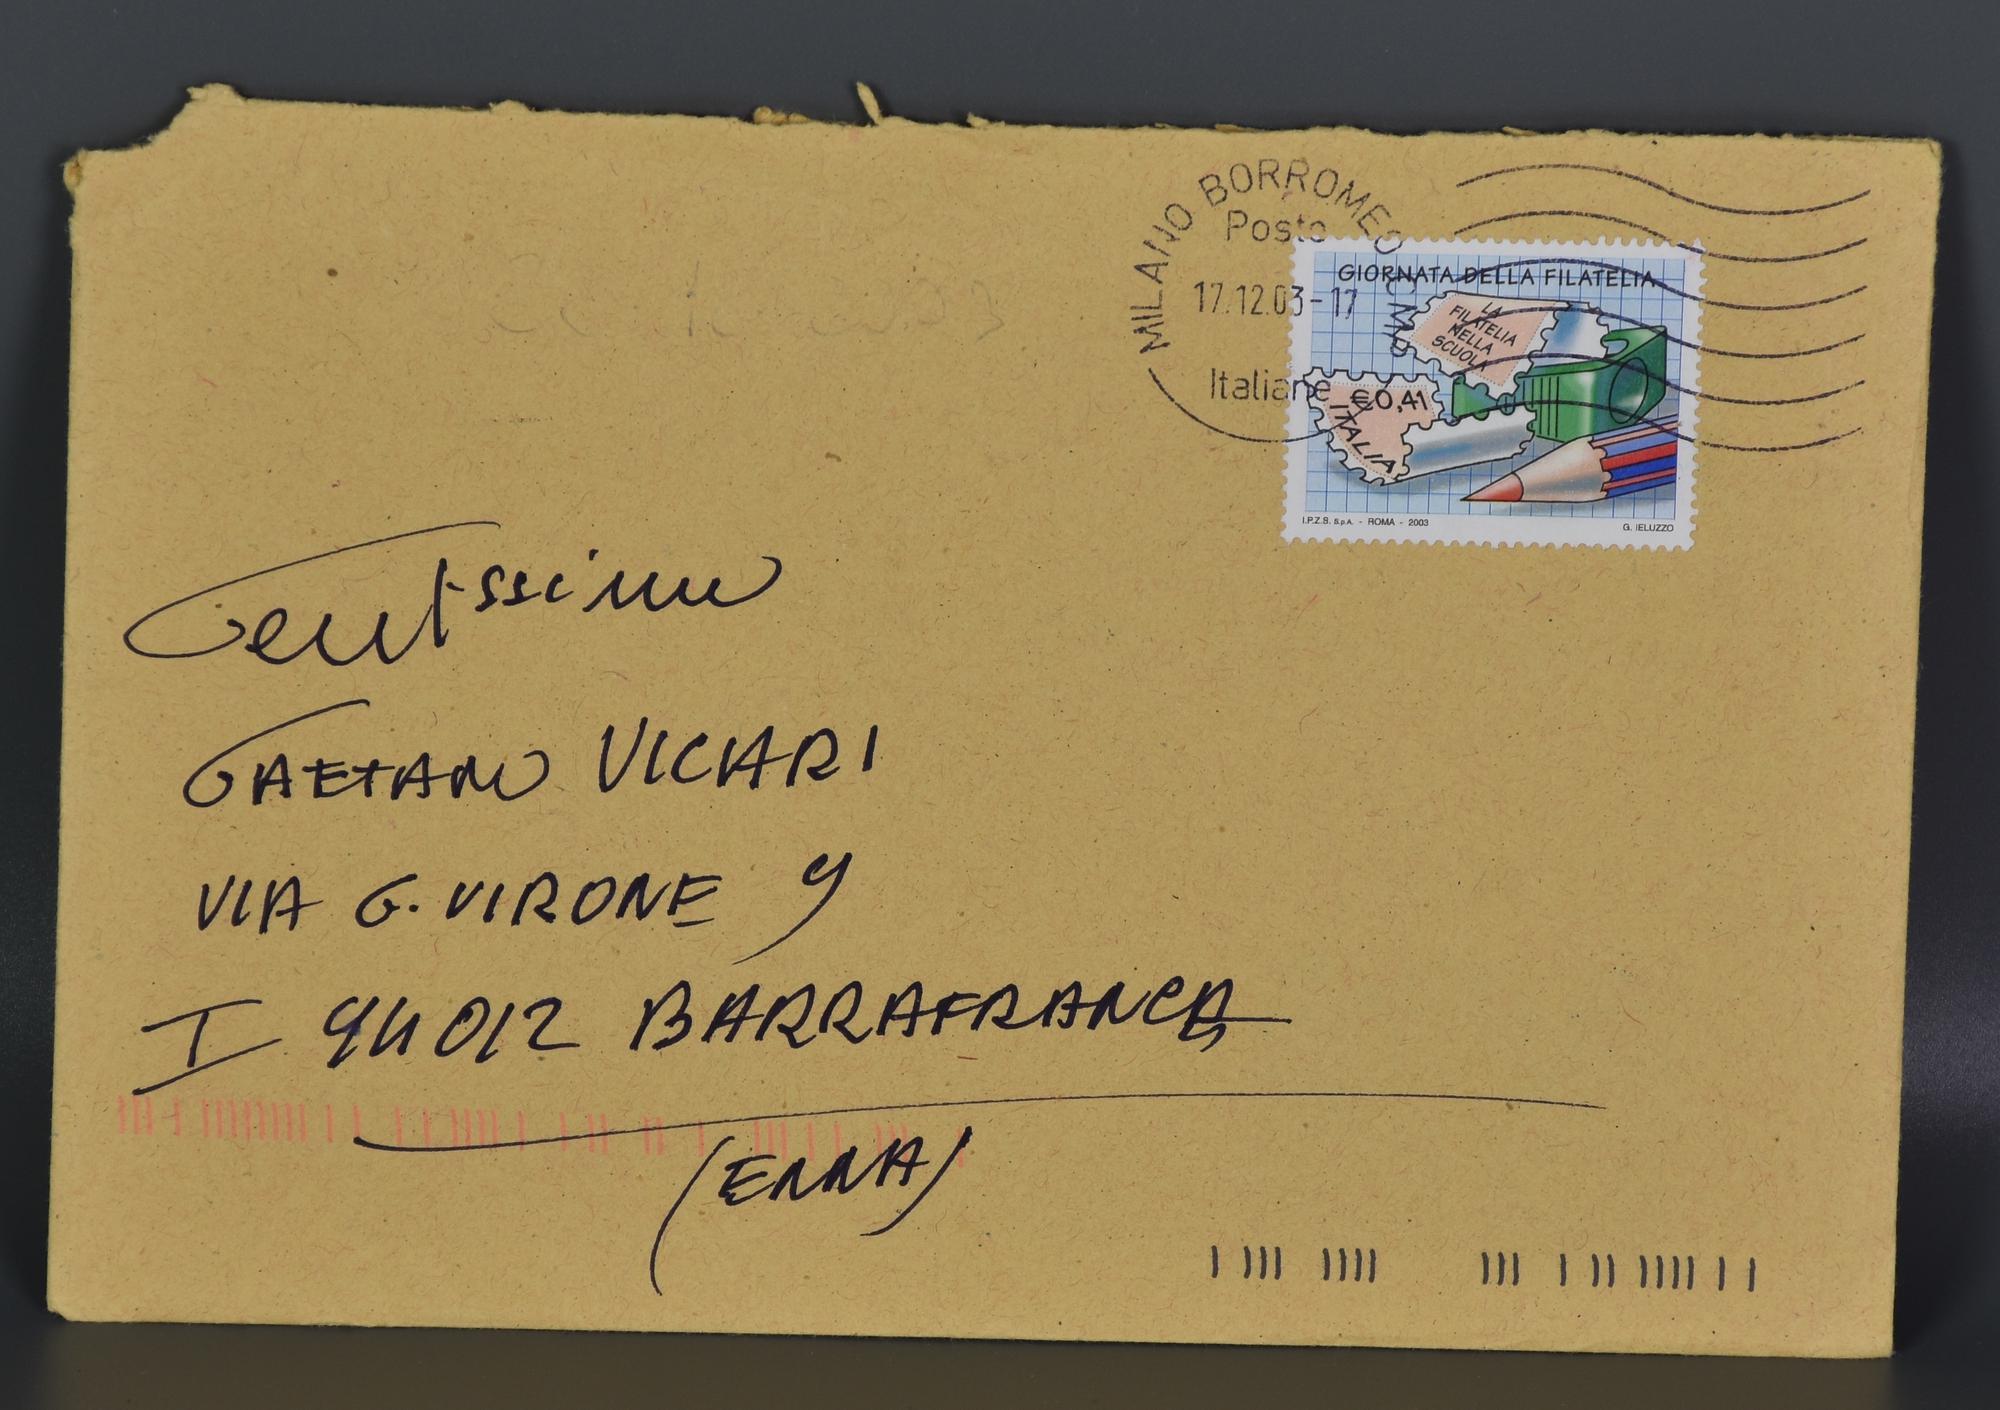 MILANO BORROMEO CMP
Poste
17.12.03-17
Italiane
GIORNATA DELLA FILATELIA
LA
FILATELIA
NELLA
SCUOLA
€0,41
ITALIA
I.P.Z.S. S.p.A. - ROMA - 2003
G. IELUZZO
Gentissimo
GAETANO VICARI
VIA G. VIRONE 9
I 94012 BARRAFRANCA
(ENNA)